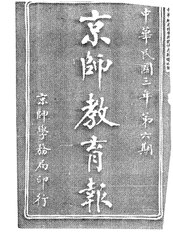 中華民國三年第六期
京師教育報
京師學務局印行